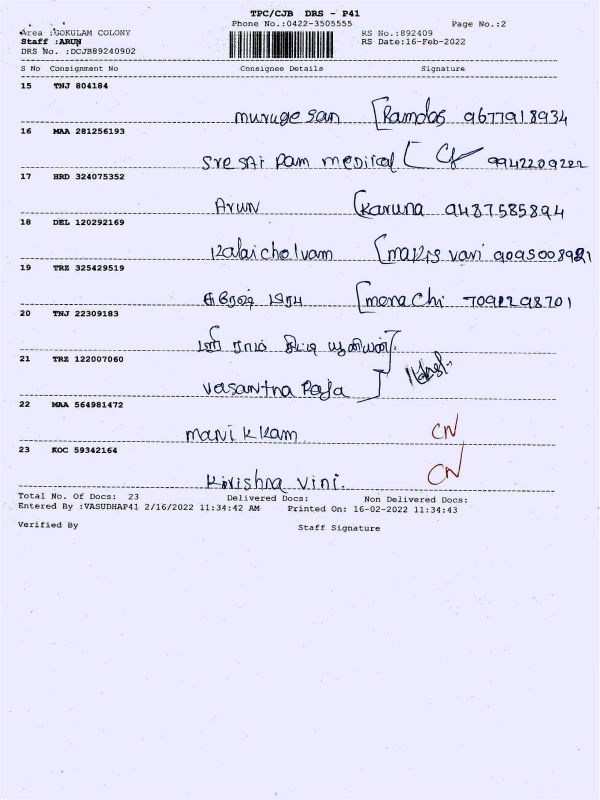 TPC/CJB DRS - P41
Phone No.:0422-3505555 Page No.:2
Area :GOKULAM COLONY RS No.:892409
Staff :ARUN RS Date:16-Feb-2022
DRS No. :DCJB89240902
S No Consignment No Consignee Details Signature
15 TNJ 804184
murugesan [Ramdas 9677918934
16 MAA 281256193
Sre Sai Ram medical [ 9942209222
17 HRD 324075352
Arun [Karuna 9487585894
18 DEL 120292169
Kalaichelvam 9095008921
19 TRZ 325429519
[menachi 7091298701
20 TNJ 22309183
ஸ்ரீ ராம்
21 TRZ 122007060
Vasantha Raja ]
22 MAA 564981472
manikkam CN
23 KOC 59342164
Krishna vini. CN
Total No. Of Docs: 23 Delivered Docs: Non Delivered Docs:
Entered By :VASUDHAP41 2/16/2022 11:34:42 AM Printed On: 16-02-2022 11:34:43
Verified By Staff Signature